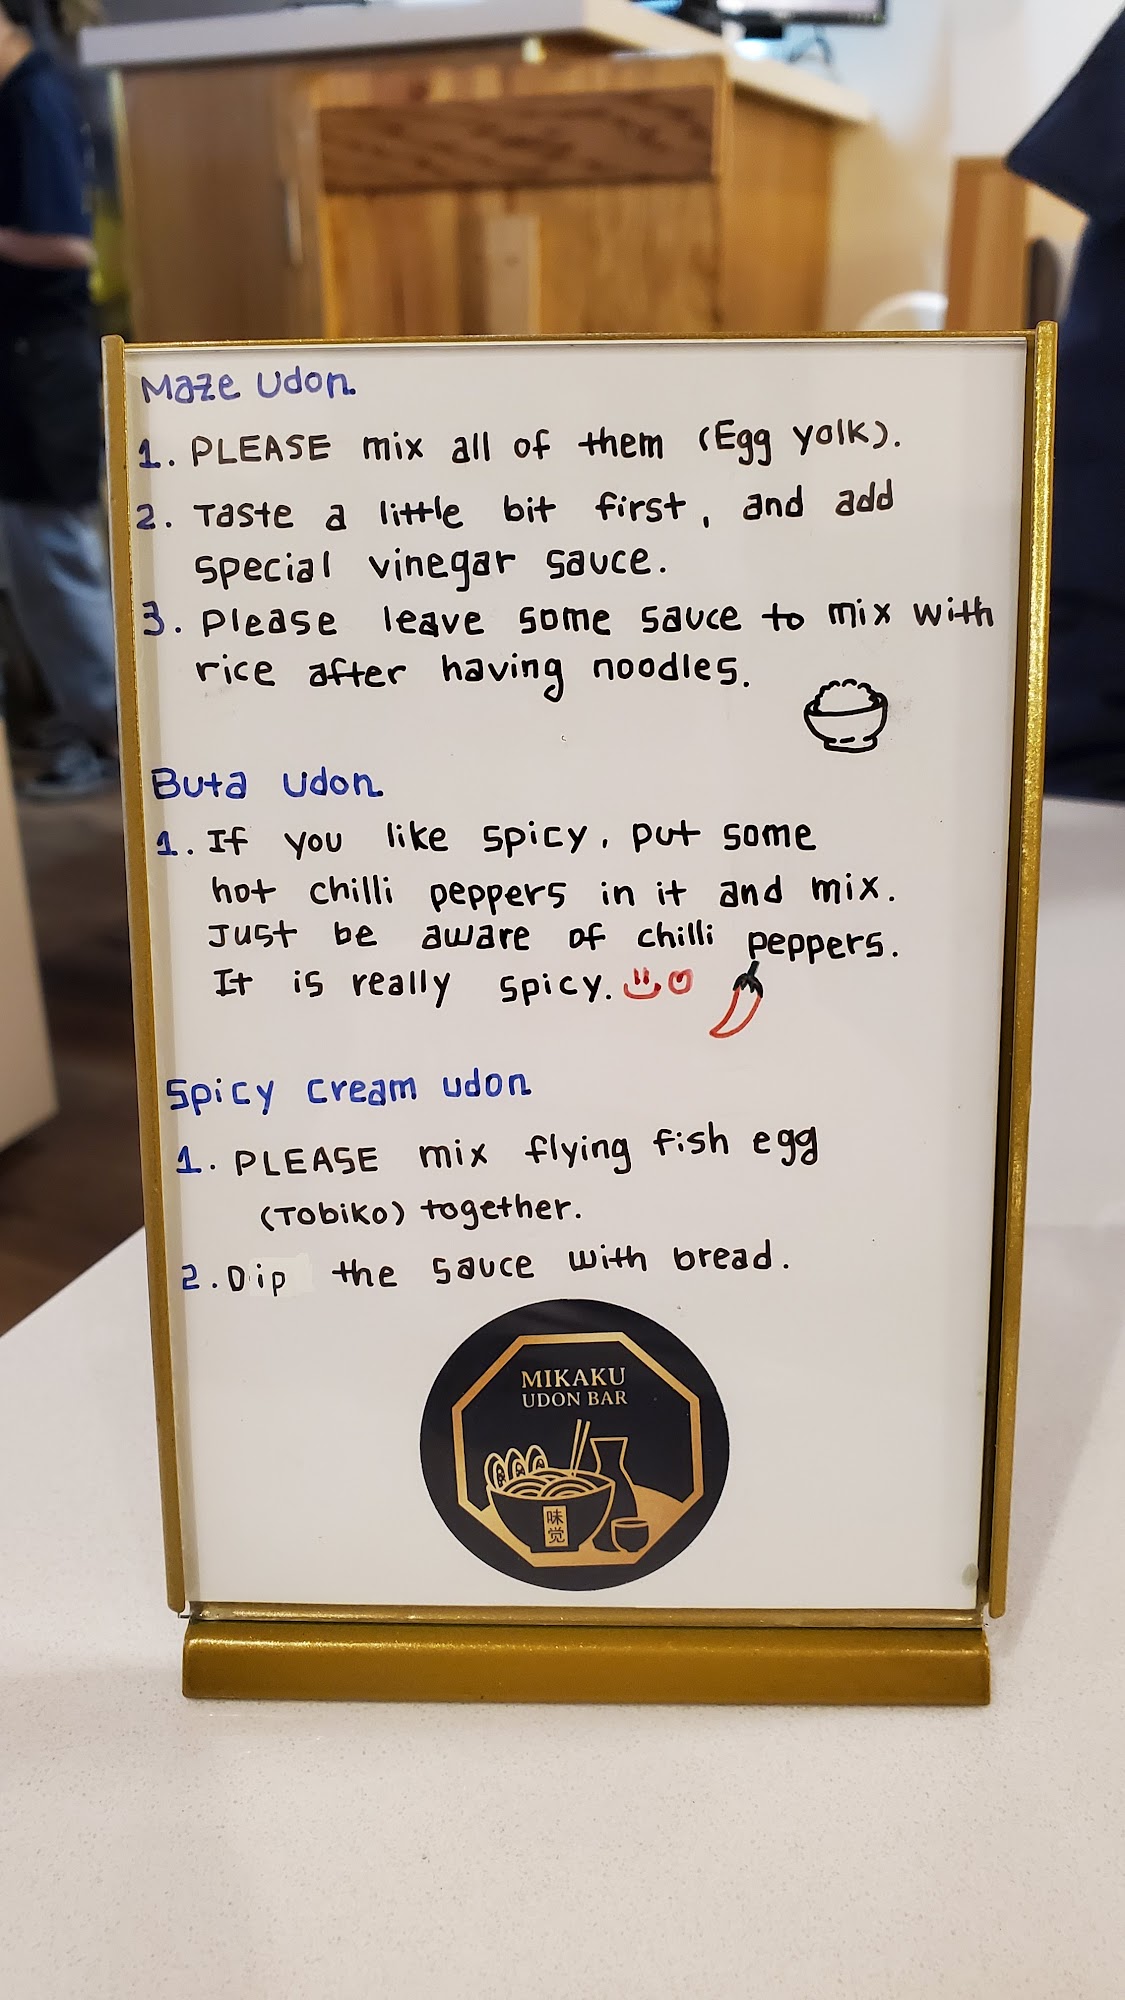 Maze udon
1. PLEASE mix all of them (Egg yolk).
2. Taste a little bit first, and add
special vinegar sauce.
3. Please leave some sauce to mix with
rice after having noodles.
Buta udon
1. If you like spicy, put some
hot chilli peppers in it and mix.
Just be aware of chilli peppers.
It is really spicy.
Spicy cream udon
1. PLEASE mix flying fish egg
(Tobiko) together.
2. Dip the sauce with bread.
MIKAKU
UDON BAR
味
觉